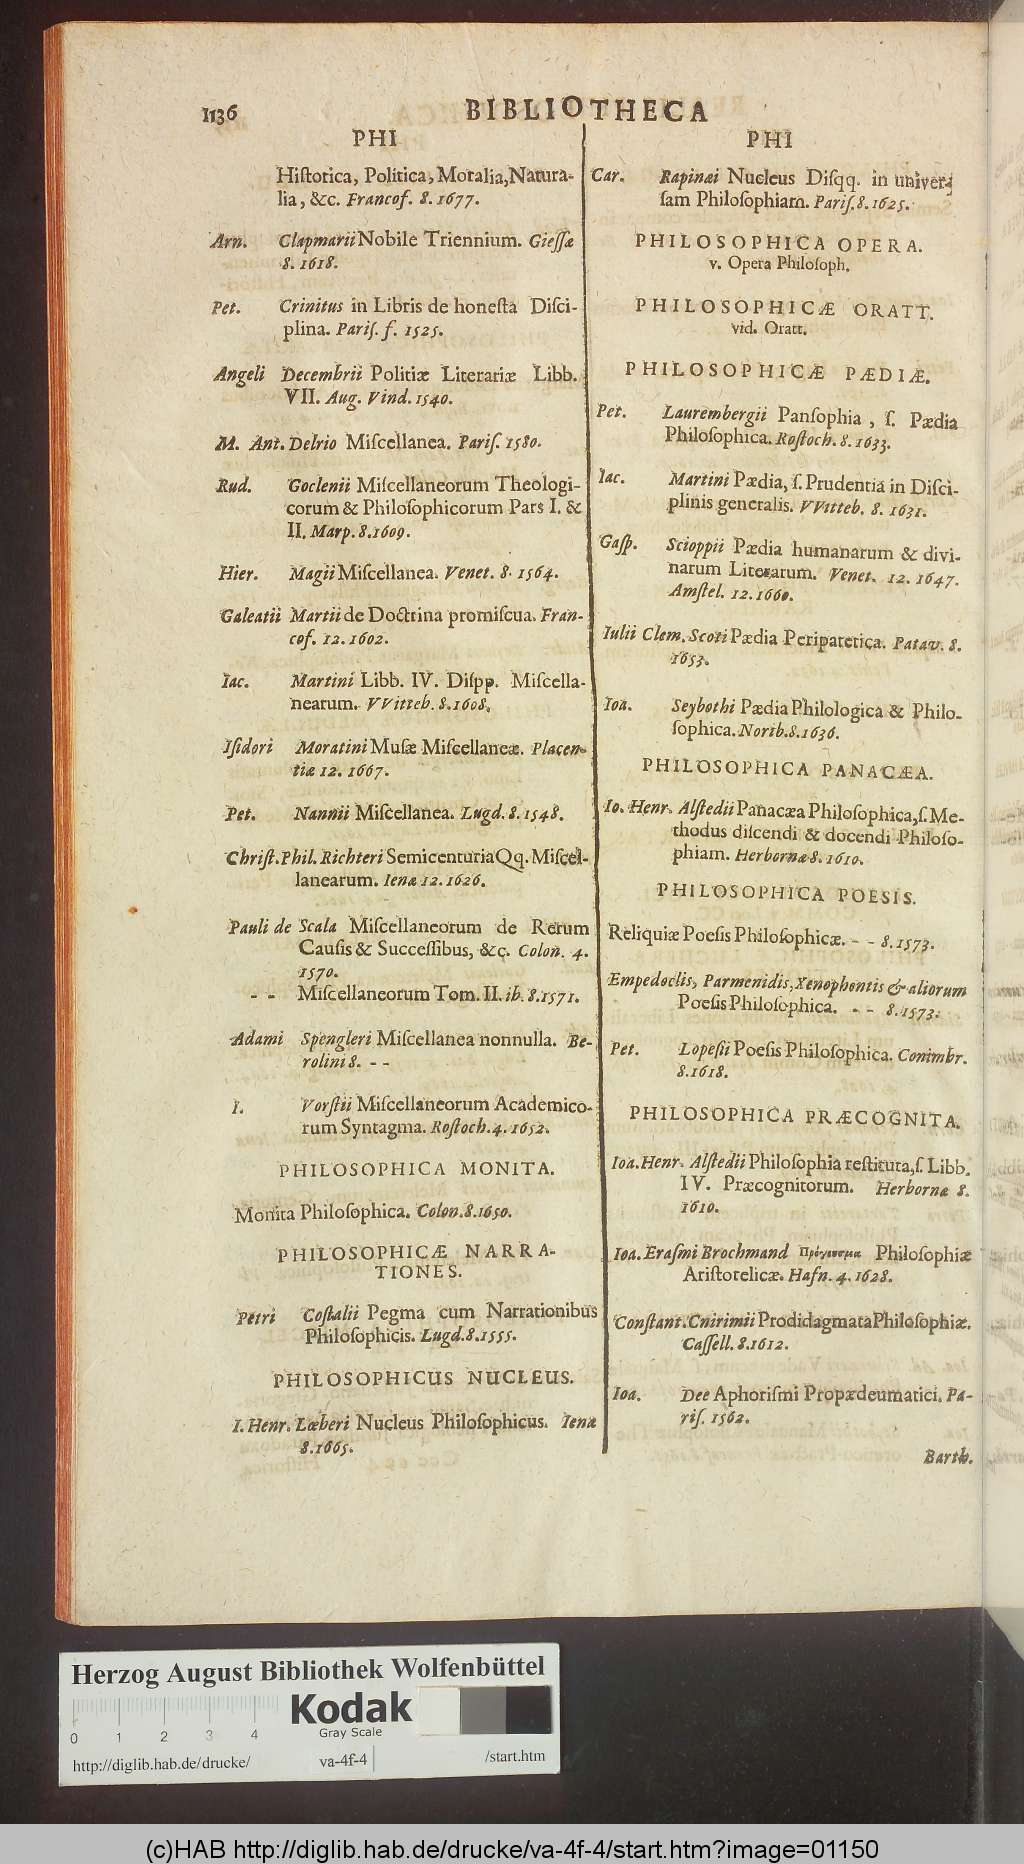 1136 BIBLIOTHECA
PHI
Historica, Politica, Moralia, Natura-
lia, &c. Francof. 8. 1677.
Arn. Clapmarii Nobile Triennium. Giessæ
8. 1618.
Pet. Crinitus in Libris de honesta Disci-
plina. Paris. f. 1525.
Angeli Decembrii Politiæ Literariæ Libb.
VII. Aug. Vind. 1540.
M. Ant. Delrio Miscellanea. Paris. 1580.
Rud. Goclenii Miscellaneorum Theologi-
corum & Philosophicorum Pars I. &
II. Marp. 8. 1609.
Hier. Magii Miscellanea. Venet. 8. 1564.
Galeatii Martii de Doctrina promiscua. Fran-
cof. 12. 1602.
Iac. Martini Libb. IV. Dispp. Miscella-
nearum. VVitteb. 8. 1608.
Isidori Moratini Musæ Miscellaneæ. Placen-
tiæ 12. 1667.
Pet. Nannii Miscellanea. Lugd. 8. 1548.
Christ. Phil. Richteri Semicenturia Qq. Miscel-
lanearum. Ienæ 12. 1626.
Pauli de Scala Miscellaneorum de Rerum
Causis & Successibus, &c. Colon. 4.
1570.
- - Miscellaneorum Tom. II. ib. 8. 1571.
Adami Spengleri Miscellanea nonnulla. Be-
rolini 8. - -
I. Vorstii Miscellaneorum Academico-
rum Syntagma. Rostoch. 4. 1652.
PHILOSOPHICA MONITA.
Monita Philosophica. Colon. 8. 1650.
PHILOSOPHICÆ NARRA-
TIONES.
Petri Costalii Pegma cum Narrationibus
Philosophicis. Lugd. 8. 1555.
PHILOSOPHICUS NUCLEUS.
I. Henr. Læberi Nucleus Philosophicus. Ienæ
8. 1665.
PHI
Car. Rapinæi Nucleus Disqq. in univer-
sam Philosophiam. Paris. 8. 1625.
PHILOSOPHICA OPERA.
v. Opera Philosoph.
PHILOSOPHICÆ ORATT.
vid. Oratt.
PHILOSOPHICÆ PÆDIÆ.
Pet. Laurembergii Pansophia, s. Pædia
Philosophica. Rostoch. 8. 1633.
Iac. Martini Pædia, s. Prudentia in Disci-
plinis generalis. VVitteb. 8. 1631.
Gasp. Scioppii Pædia humanarum & divi-
narum Literarum. Venet. 12. 1647.
Amstel. 12. 1660.
Iulii Clem. Scoti Pædia Peripatetica. Patav. 8.
1653.
Ioa. Seybothi Pædia Philologica & Philo-
sophica. Norib. 8. 1636.
PHILOSOPHICA PANACÆA.
Io. Henr. Alstedii Panacæa Philosophica, s. Me-
thodus discendi & docendi Philoso-
phiam. Herbornæ 8. 1610.
PHILOSOPHICA POESIS.
Reliquiæ Poesis Philosophicæ. - - 8. 1573.
Empedoclis, Parmenidis, Xenophontis & aliorum
Poesis Philosophica. - - 8. 1573.
Pet. Lopesii Poesis Philosophica. Conimbr.
8. 1618.
PHILOSOPHICA PRÆCOGNITA.
Ioa. Henr. Alstedii Philosophia restituta, s. Libb.
IV. Præcognitorum. Herbornæ 8.
1610.
Ioa. Erasmi Brochmand Philosophiæ
Aristotelicæ. Hafn. 4. 1628.
Constant. Cnirimii Prodidagmata Philosophiæ.
Cassell. 8. 1612.
Ioa. Dee Aphorismi Propædeumatici. Pa-
ris. 1562.
Barth.
Herzog August Bibliothek Wolfenbüttel
Kodak
Gray Scale
0 1 2 3 4
http://diglib.hab.de/drucke/ va-4f-4 /start.htm
(c)HAB http://diglib.hab.de/drucke/va-4f-4/start.htm?image=01150